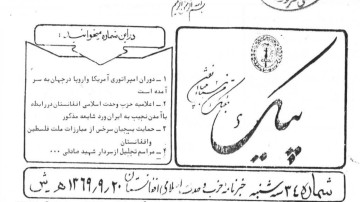 در این شماره میخوانید:
۱ ــ دوران امپراتوری آمریکا و اروپا درجهان به سر
آمده است
۲ ــ اعلامیه حزب وحدت اسلامی افغانستان دررابطه
باآمدن نجیب به ایران ورد شایعه مذکور
۳ ــ حمایت بسیجیان سرخس از مبارزات ملت فلسطین
وافغانستان
۴ ــ مراسم تجلیل از سردار شهید صادقی ۰۰۰
پیک
شماره ۳۴ سه شنبه خبرنامهٔ حزب وحدت اسلامی افغانستان ۱۳۶۹٫۹٫۲۰ هـ ش